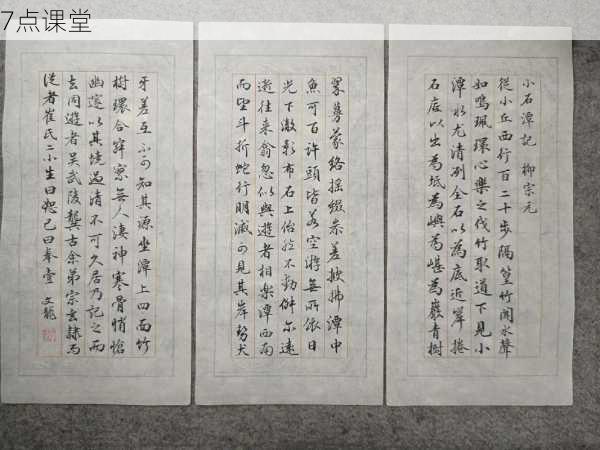 7点课堂
小石潭記 柳宗元
從小丘西行百二十步隔篁竹聞水聲
如鳴珮環心樂之伐竹取道下見小
潭水尤清冽全石以為底近岸捲
石底以出為坻為嶼為嵁為巖青樹
翠蔓蒙絡搖綴參差披拂潭中
魚可百許頭皆若空游無所依日
光下澈影布石上佁然不動俶爾遠
逝往來翕忽似與遊者相樂潭西南
而望斗折蛇行明滅可見其岸勢犬
牙差互不可知其源坐潭上四面竹
樹環合寂寥無人淒神寒骨悄愴
幽邃以其境過清不可久居乃記之而
去同遊者吳武陵龔古余弟宗玄隸而
從者崔氏二小生曰恕己曰奉壹 文龍